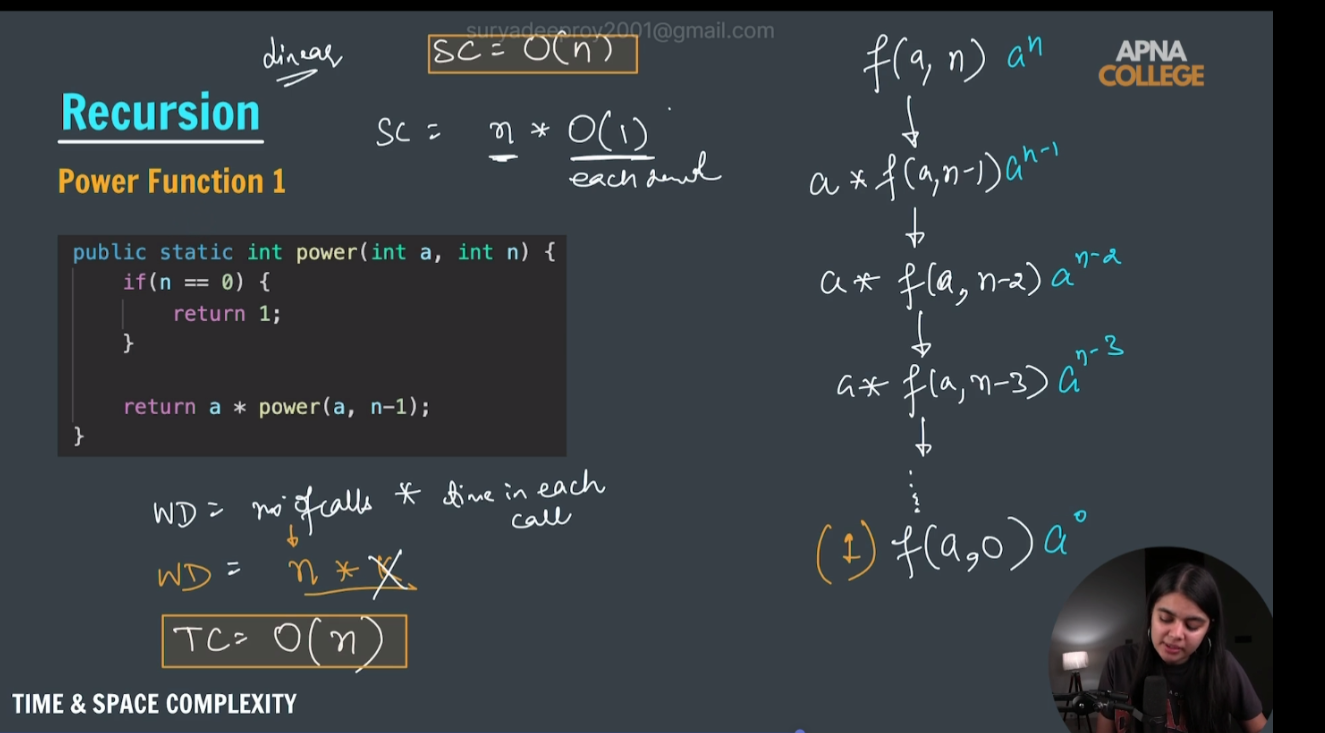 suryadeeproy2001@gmail.com
linear
SC = O(n)
APNA
COLLEGE
Recursion
SC = n * O(1)
each
Power Function 1
public static int power(int a, int n) {
if(n == 0) {
return 1;
}
return a * power(a, n-1);
}
WD = no. of calls * time in each
call
WD = n *
TC = O(n)
f(a, n) aⁿ
a * f(a, n-1) aⁿ⁻¹
a * f(a, n-2) aⁿ⁻²
a * f(a, n-3) aⁿ⁻³
(1) f(a, 0) a⁰
TIME & SPACE COMPLEXITY